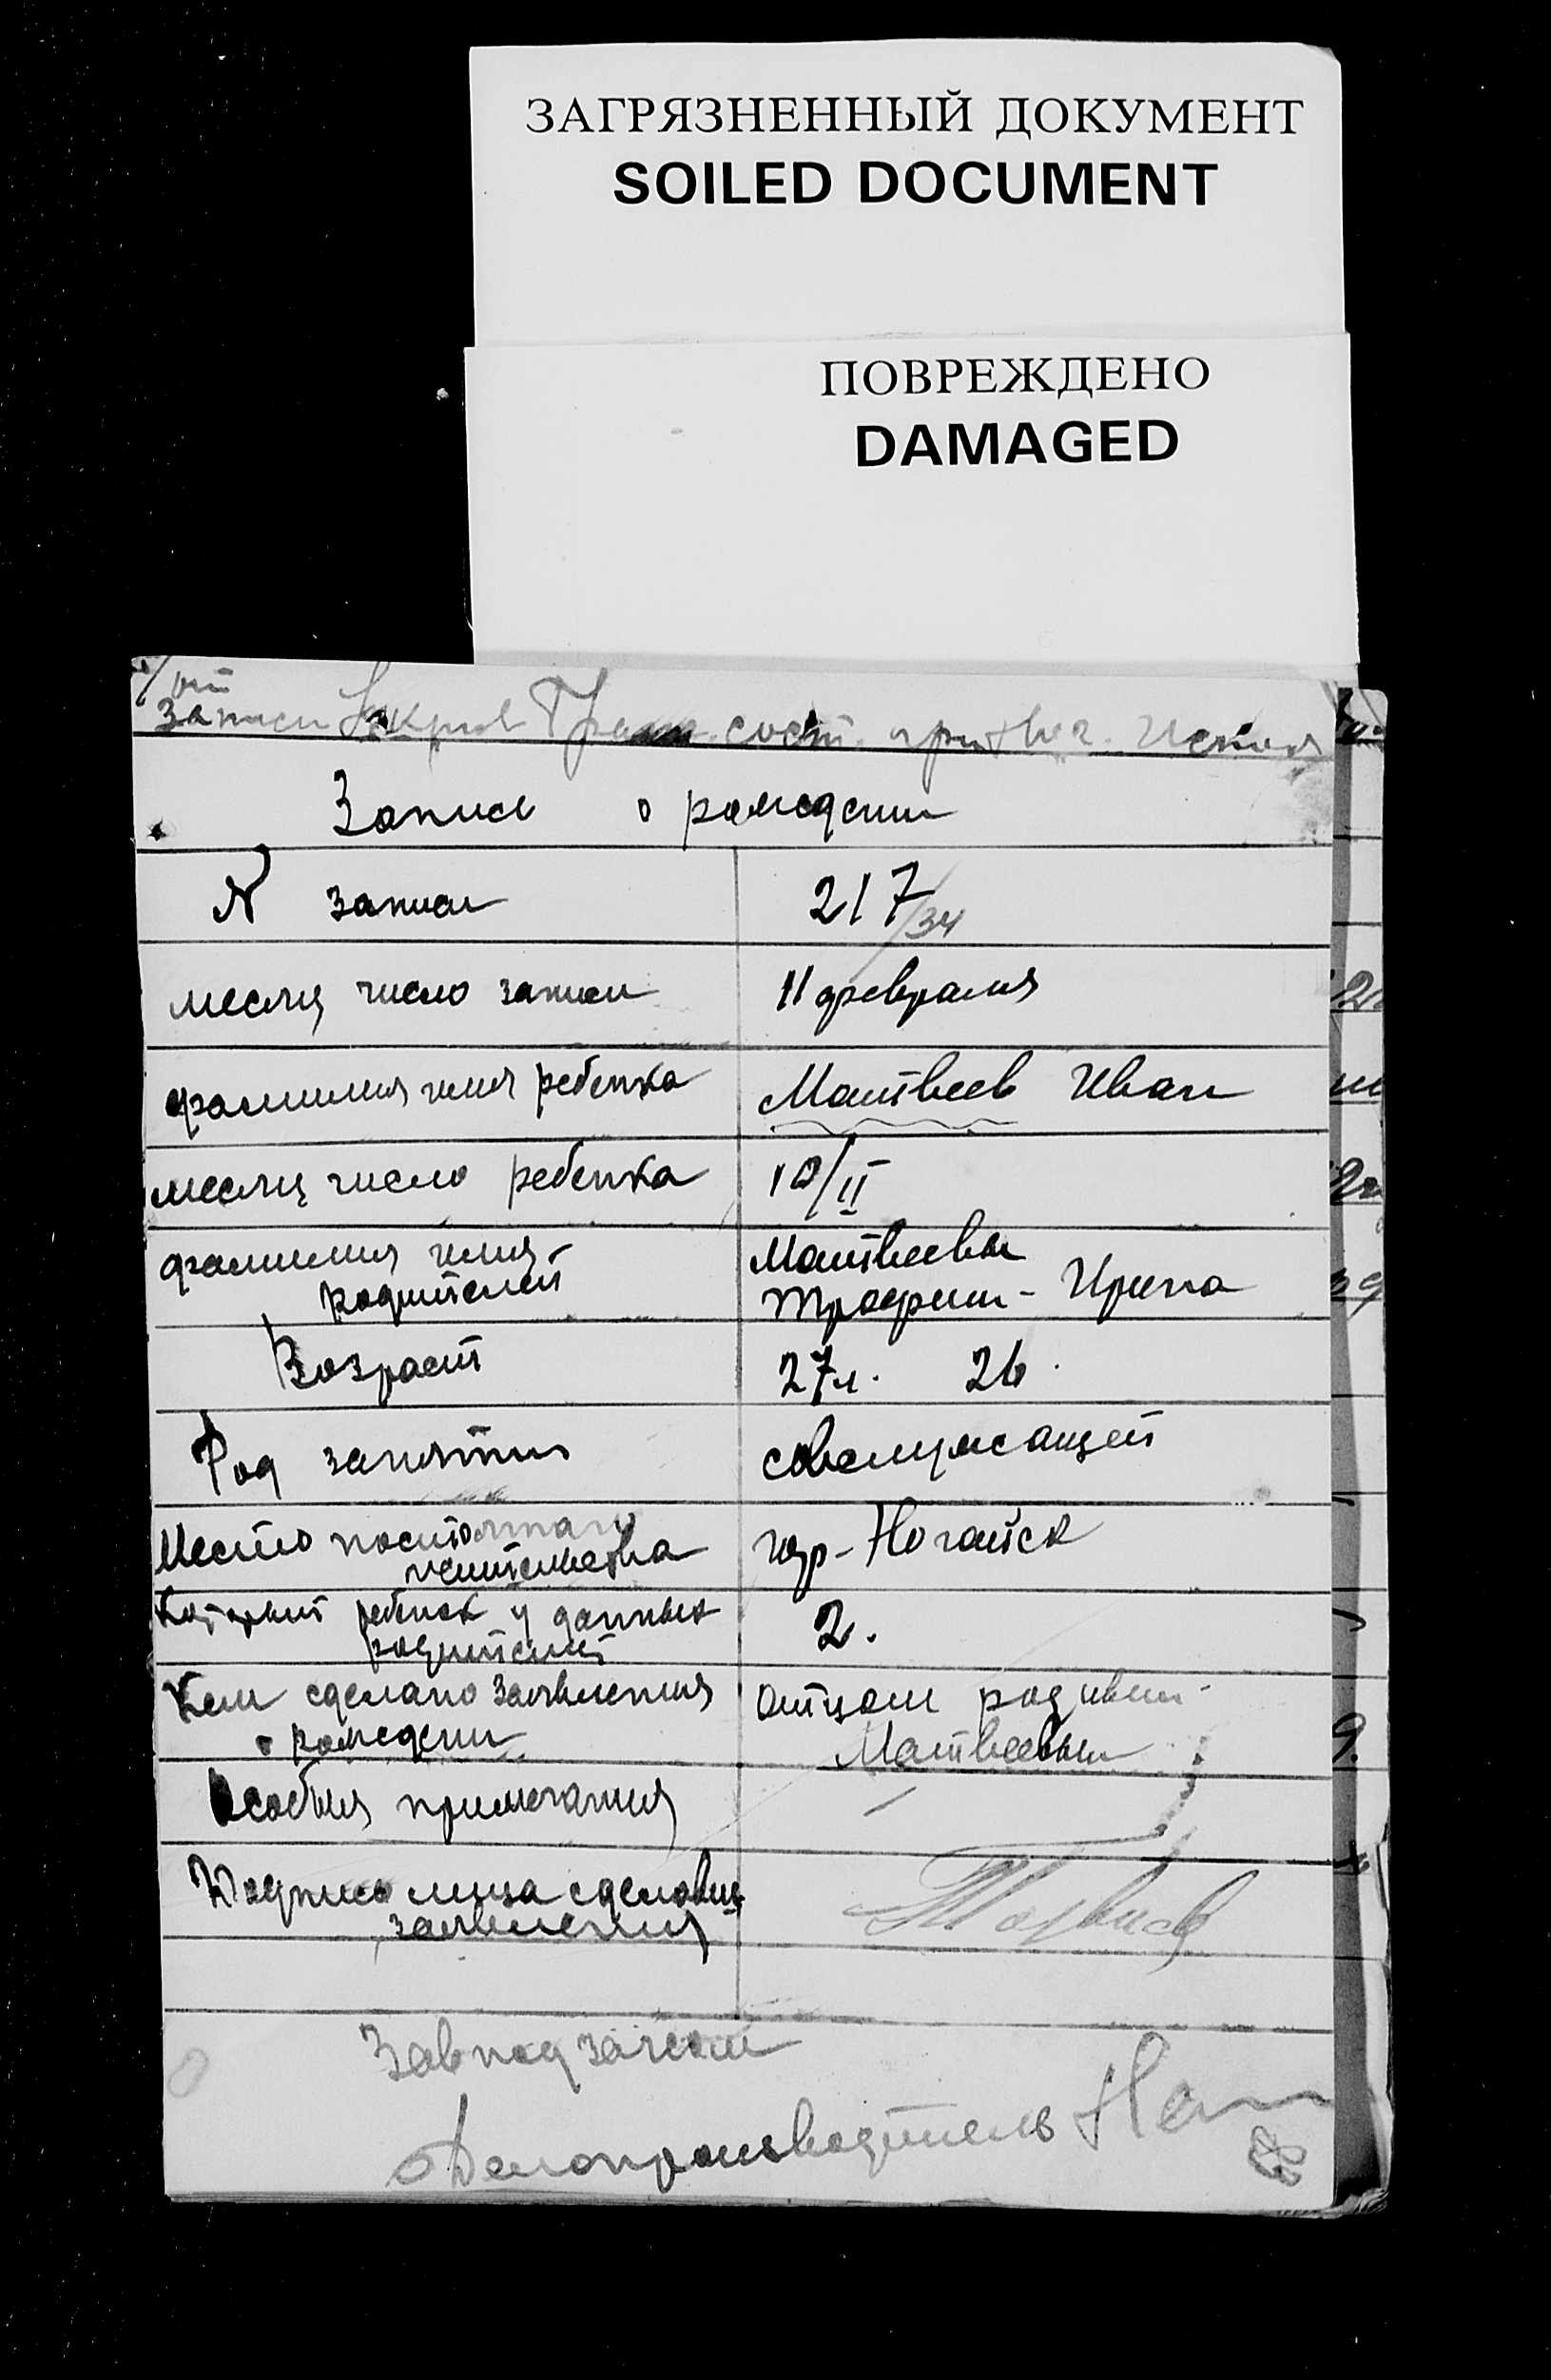 ЗАГРЯЗНЕННЫЙ ДОКУМЕНТ
SOILED DOCUMENT
ПОВРЕЖДЕНО
DAMAGED
от
записи сост. при
Запись о рождении
N записи 217/34
месяц число записи 11 февраля
фамилия имя ребенка Матвеев Иван
месяц число ребенка 10/II
фамилия имя Матвеевы
родителей Трофим - Ирина
Возраст 27 л. 26.
Род занятия совслужащей
Место постоянного гор - Ногайск
жительства
Который ребенок у данных 2.
родителей
Кем сделано заявления отцом
о рождении Матвеевым
Особыя примечания -
Подпись лица сделавш Матвеев
заявления
Зав подзагсом
Делопроизводитель